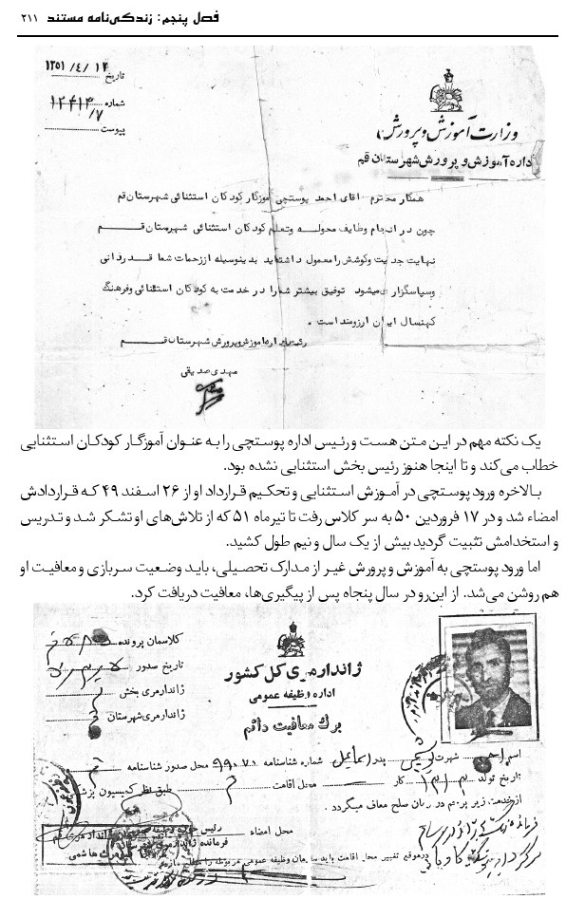 فصل پنجم: زندگی‌نامه مستند ۲۱۱
تاریخ ۱۳۵۱/۴/۱۴
شماره
پیوست
وزارت آموزش و پرورش
اداره آموزش و پرورش شهرستان قم
همکار محترم آقای احمد پوستچی آموزگار کودکان استثنائی شهرستان قم
چون در انجام وظایف محوله و تعلیم کودکان استثنائی شهرستان قم
نهایت جدیت و کوشش را معمول داشته‌اید بدینوسیله از زحمات شما قدردانی
و سپاسگزاری میشود توفیق بیشتر شما را در خدمت به کودکان استثنائی و فرهنگ
کهنسال ایران آرزومند است .
رئیس اداره آموزش و پرورش شهرستان قم
مهدی صدیقی
یک نکته مهم در این متن هست و رئیس اداره پوستچی را به عنوان آموزگار کودکان استثنایی
خطاب می‌کند و تا اینجا هنوز رئیس بخش استثنایی نشده بود.
بالاخره ورود پوستچی در آموزش استثنایی و تحکیم قرارداد او از ۲۶ اسفند ۴۹ که قراردادش
امضاء شد و در ۱۷ فروردین ۵۰ به سر کلاس رفت تا تیرماه ۵۱ که از تلاش‌های او تشکر شد و تدریس
و استخدامش تثبیت گردید بیش از یک سال و نیم طول کشید.
اما ورود پوستچی به آموزش و پرورش غیر از مدارک تحصیلی، باید وضعیت سربازی و معافیت او
هم روشن می‌شد. از این‌رو در سال پنجاه پس از پیگیری‌ها، معافیت دریافت کرد.
کلاسمان پرونده
تاریخ صدور
ژاندارمری بخش
ژاندارمری شهرستان
ژاندارمری کل کشور
اداره وظیفه عمومی
برگ معافیت دائم
اسم احمد شهرت پدر اسماعیل شماره شناسنامه محل صدور شناسنامه
تاریخ تولد کار محل اقامت طبق نظر کمیسیون
از خدمت زیر پرچم در زمان صلح معاف میگردد .
محل امضاء
در موقع تغییر محل اقامت باید وظیفه عمومی مربوطه را